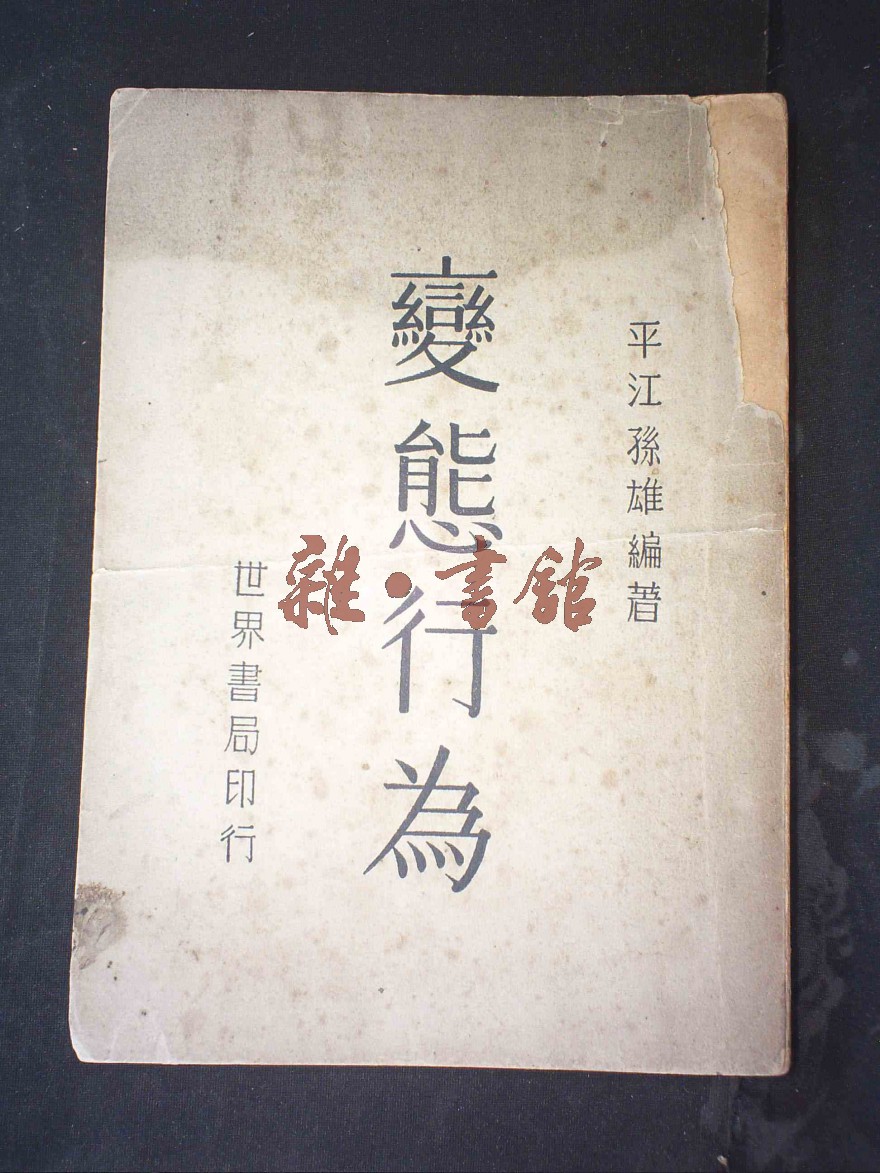 平江孫雄編著
變態行為
世界書局印行
雜·書館